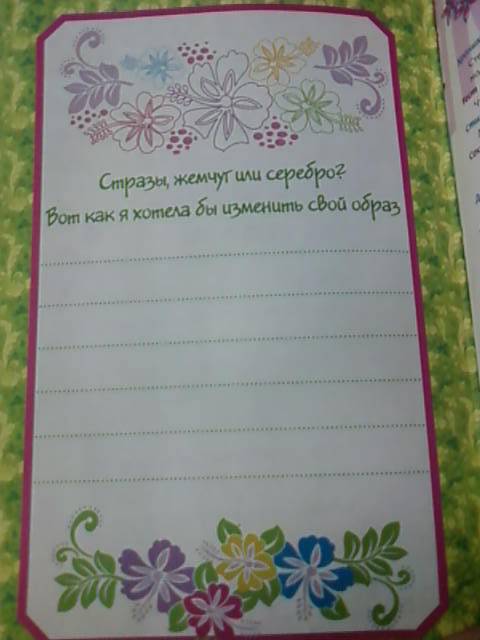 Стразы, жемчуг или серебро?
Вот как я хотела бы изменить свой образ